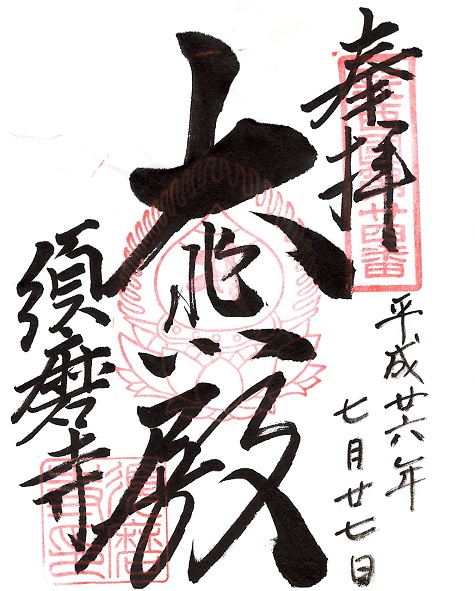 奉拝
平成廿六年
七月廿七日
大悲殿
須磨寺